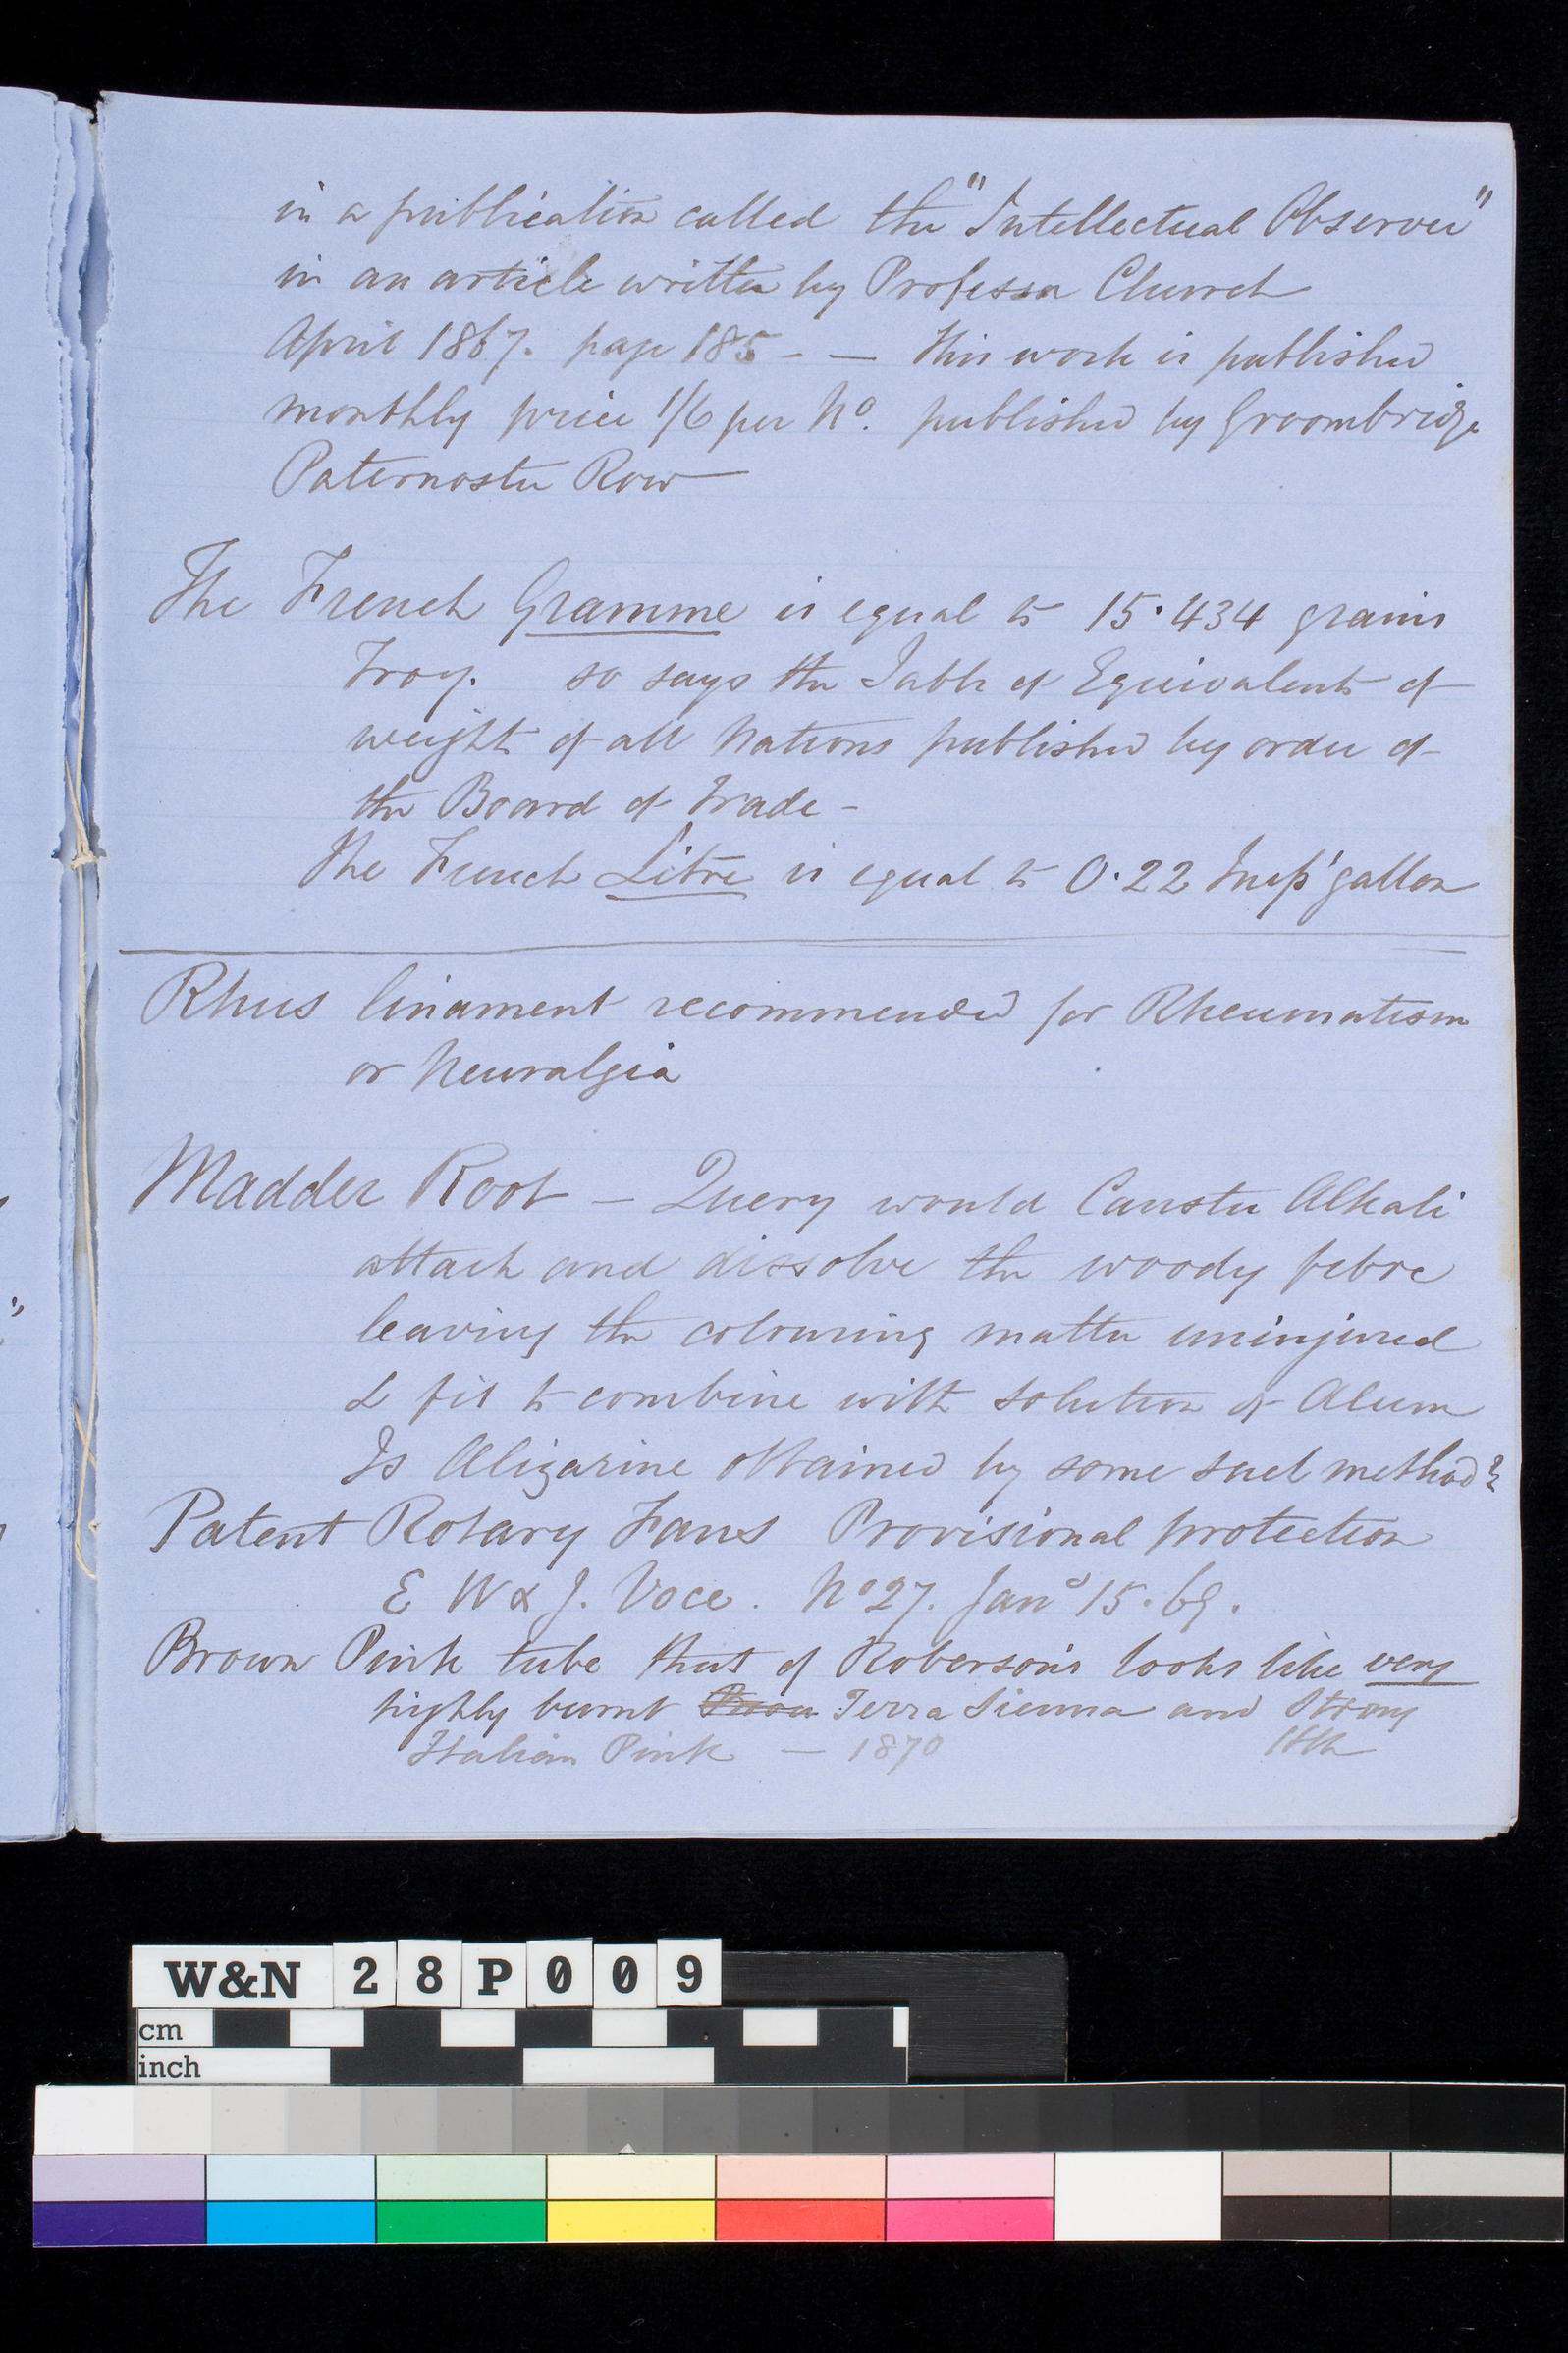 in a publication called the "Intellectual Observer"
in an article written by Professor Church
April 1867. page 185 - — This work is published
monthly price 1/6 per No. published by Groombridge
Paternoster Row
The French Gramme is equal to 15.434 grains
Troy. so says the Table of Equivalents of
weight of all Nations published by order of
the Board of Trade -
The French Litre is equal to 0.22 Imp' gallon
Rhus linament recommended for Rheumatism
or Neuralgia
Madder Root — Query would Caustic Alkali
attack and dissolve the woody fibre
leaving the colouring matter uninjured
& fit to combine with solution of Alum
Is Alizarine obtained by some such method?
Patent Rotary Fans Provisional protection
E W & J. Voce. No 27. Jany 15.69.
Brown Pink tube that of Roberson's looks like very
highly burnt Terra Sienna and Strong
Italian Pink — 1870
W&N 28P009
cm
inch